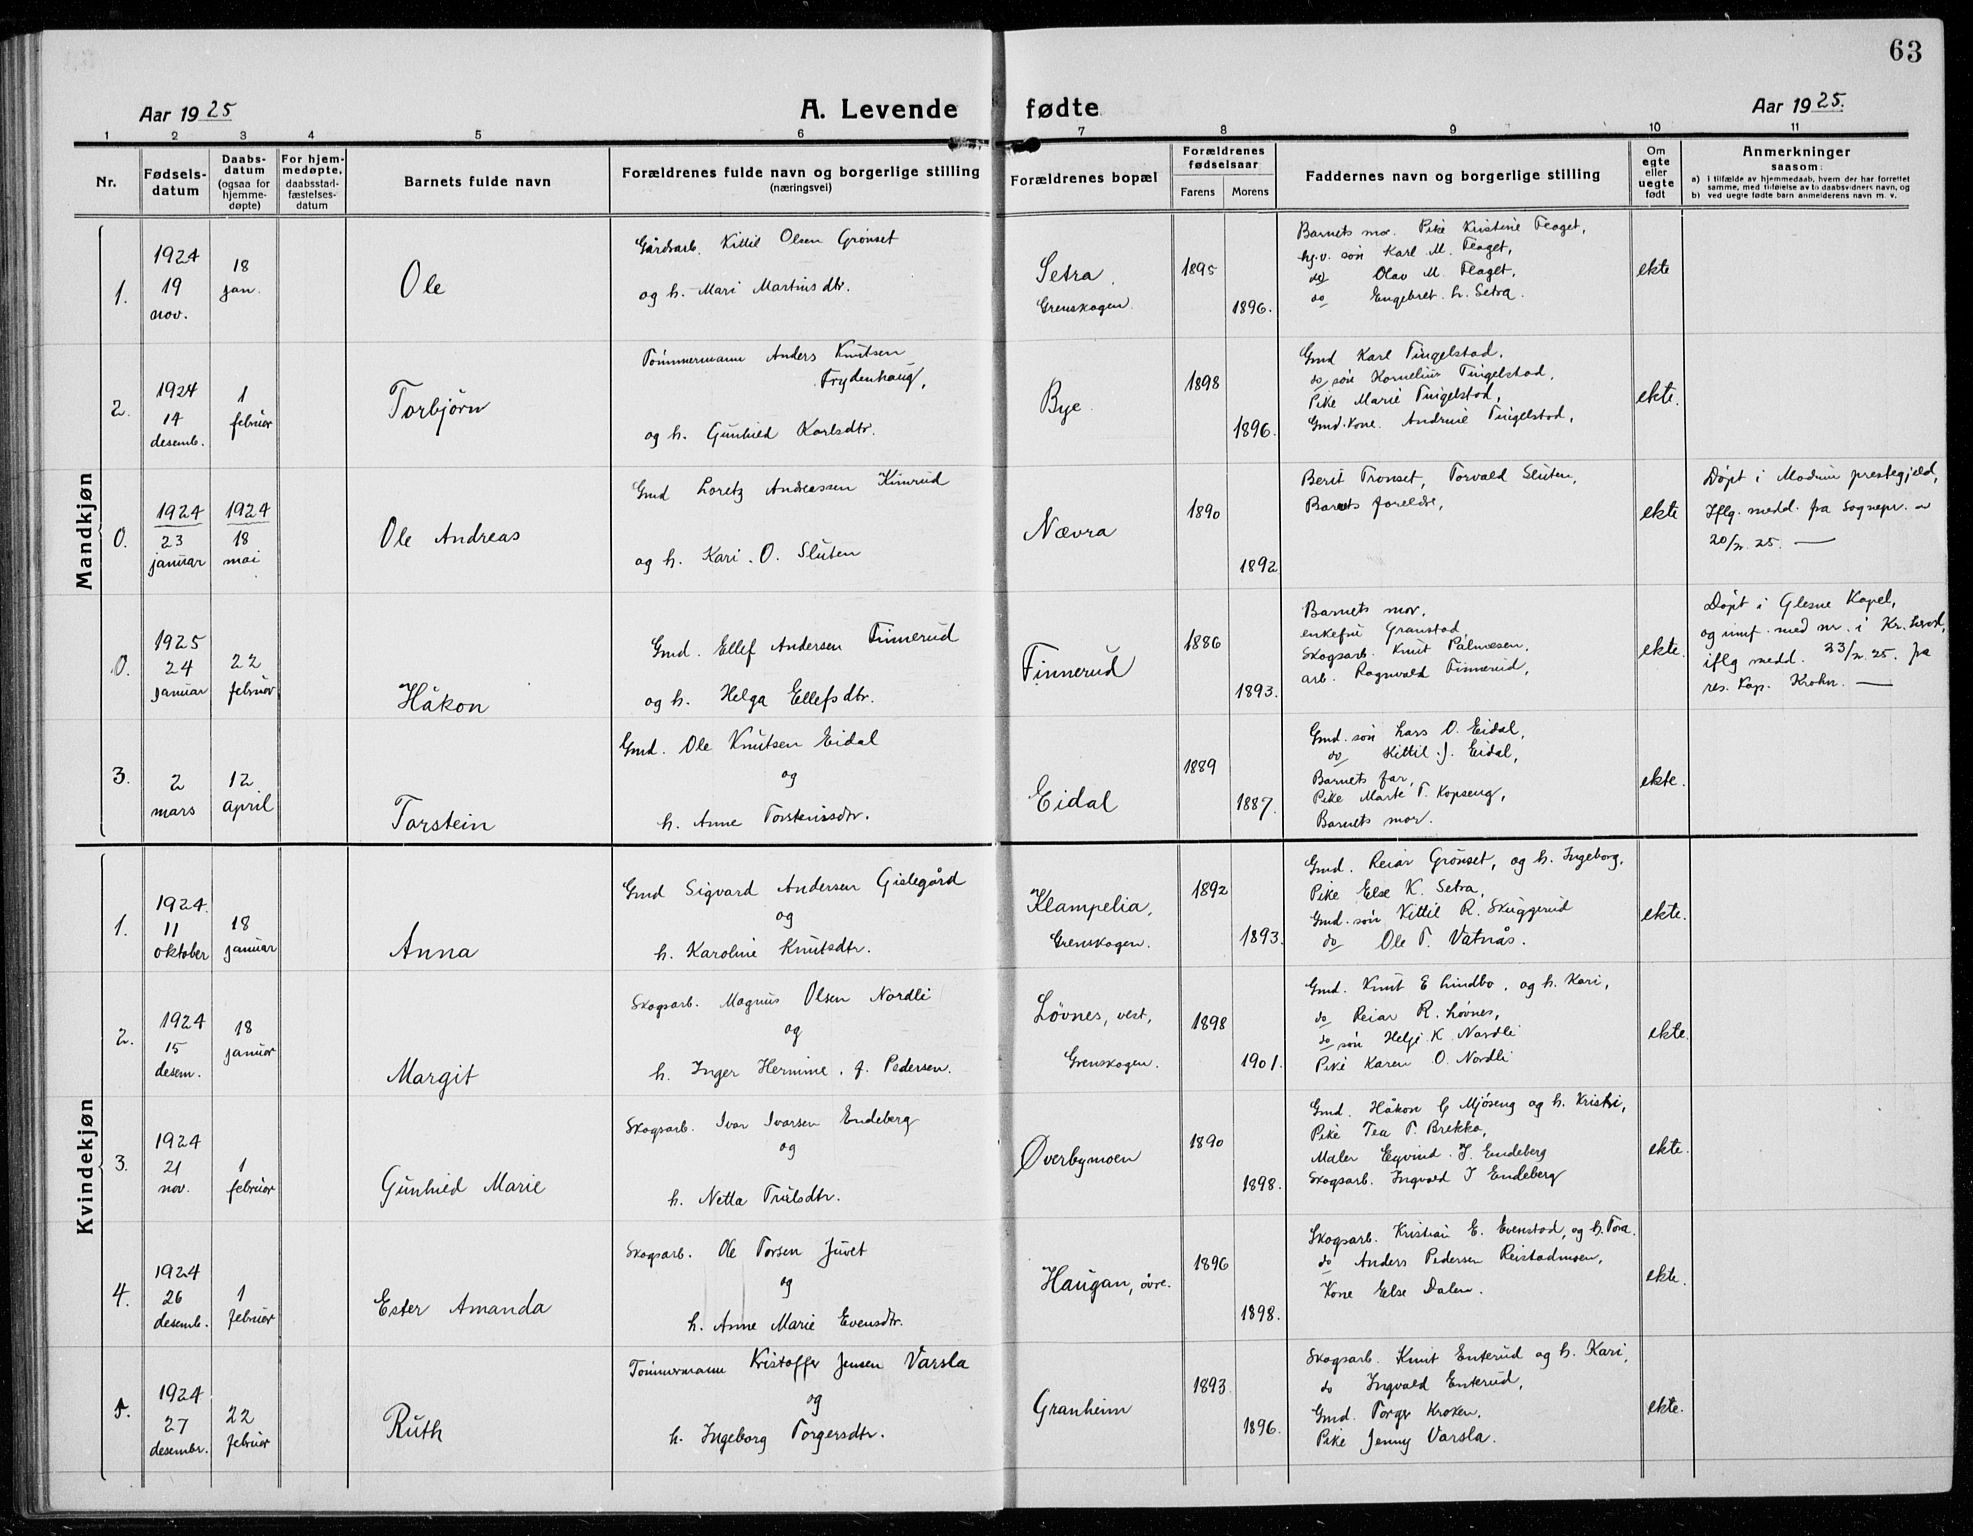 63
Aar 1925
A. Levende fødte
Aar 1925.
1 2 3 4 5 6 7 8 9 10 11
Nr.
Fødsels-
datum
Daabs-
datum
(ogsaa for
hjemme-
døpte)
For hjem-
medøpte,
daabsstad-
fæstelses-
datum
Barnets fulde navn
Forældrenes fulde navn og borgerlige stilling
(næringsvei)
Forældrenes bopæl
Forældrenes
fødselsaar
Farens Morens
Faddernes navn og borgerlige stilling
Om
egte
eller
uegte
født
Anmerkninger
saasom:
a) i tilfælde av hjemmedaab, hvem der har forrettet
samme, med tilføielse av to daabsvidners navn, og
b) ved uegte fødte barn anmelderens navn m. v.
Mandkjøn
1.
1924
19
nov.
18
jan.
Ole
Gårdsarb. Kittil Olsen Grønset
og h. Mari Martinsdtr.
Setra,
Grenskogen.
1895
1896.
Barnets mor. Pike Kristine Flaget,
søn Karl M. Flaget,
do Olav M. Flaget,
do Engebret. h. Setra.
ekte
2.
1924
14
desemb.
1
februar
Torbjørn
Tømmermann Anders Knutsen
Frydenhaug,
og h. Gunhild Karlsdtr.
Bye.
1898
1896.
Gmd Karl Tingelstad.
do søn Kornelius Tingelstad,
Pike Marie Tingelstad,
Gmd. kone. Andrine Tingelstad,
ekte.
0.
1924
23
januar
1924
18
mai
Ole Andreas
Gmd Loretz Andreassen Kimrud
og h. Kari. O. Sluten
Nævra
1890
1892
Berit Tronset, Torvald Sluten,
Barnets foreldre,
ekte
Døpt i Modum prestegjeld,
Iflg. medd. fra Sognepr.
20/2. 25. —
0.
1925
24
januar
22
februar
Håkon
Gmd. Ellef Andersen Finnerud
og h. Helga Ellefsdtr.
Finnerud
1886
1893.
Barnets mor,
enkefru Granstad,
Skogsarb. Knut Palmesen,
arb. Ragnvald Finnerud,
ekte.
Døpt i Glesne Kapel,
og innf. med nr. i Kr. herad,
iflg medd. 23/2. 25. fra
res. kap. Krohn. —
3.
2
mars
12
april
Torstein
Gmd. Ole Knutsen Eidal
og
h. Anne Torsteinsdtr.
Eidal
1889
1887.
Gmd. søn Lars O. Eidal,
do Kittil J. Eidal,
Barnets far,
Pike Marte T. Kopseng,
Barnets mor.
ekte.
Kvindekjøn
1.
1924.
11
oktober
18
januar
Anna
Gmd Sigvard Andersen Gislegård
og
h. Karoline Knutsdtr.
Klampelia,
Grenskogen.
1892
1893.
Gmd. Reiar Grønset, og h. Ingeborg,
Pike Else K. Setra,
Gmd. søn Kittil R. Skuggerud
do Ole T. Vatnås.
ekte.
2.
1924
15
desem.
18
januar
Margit
Skogsarb. Magnus Olsen Nordli
og
h. Inger Hermine. f. Pedersen.
Løvnes, vest,
Grenskogen.
1898
1901.
Gmd. Knut E Lindbo. og h. Kari,
do Reiar R. Løvnes,
do søn Helje K. Nordli
Pike Karen O. Nordli
ekte.
3.
1924
21
nov.
1
februar
Gunhild Marie
Skogsarb. Ivar Ivarsen Endeberg
og
h. Netta Trulsdtr.
Øverbymoen
1890
1898.
Gmd. Håkon G Mjøseng og h. Kristi,
Pike Tea T. Brekka,
Maler Eyvind. I. Endeberg
Skogsarb. Ingvald I Endeberg
ekte.
4.
1924
26
desemb.
1
februar
Ester Amanda
Skogsarb. Ole Torsen Juvet
og
h. Anne Marie Evensdtr.
Haugan, øvre.
1896
1898.
Skogsarb. Kristian E. Evenstad, og h. Tora.
do Anders Pedersen Reistadmoen,
Kone Else Dalen.
ekte.
5.
1924
27
desembr.
22
februar
Ruth
Tømmermann Kristoffer Jensen Varsla
og
h. Ingeborg Torgersdtr.
Granheim
1893.
1896.
Skogsarb. Knut Enterud og h. Kari,
do Ingvald Enterud,
Gmd. Torger Kroken.
Pike Jenny Varsla.
ekte.